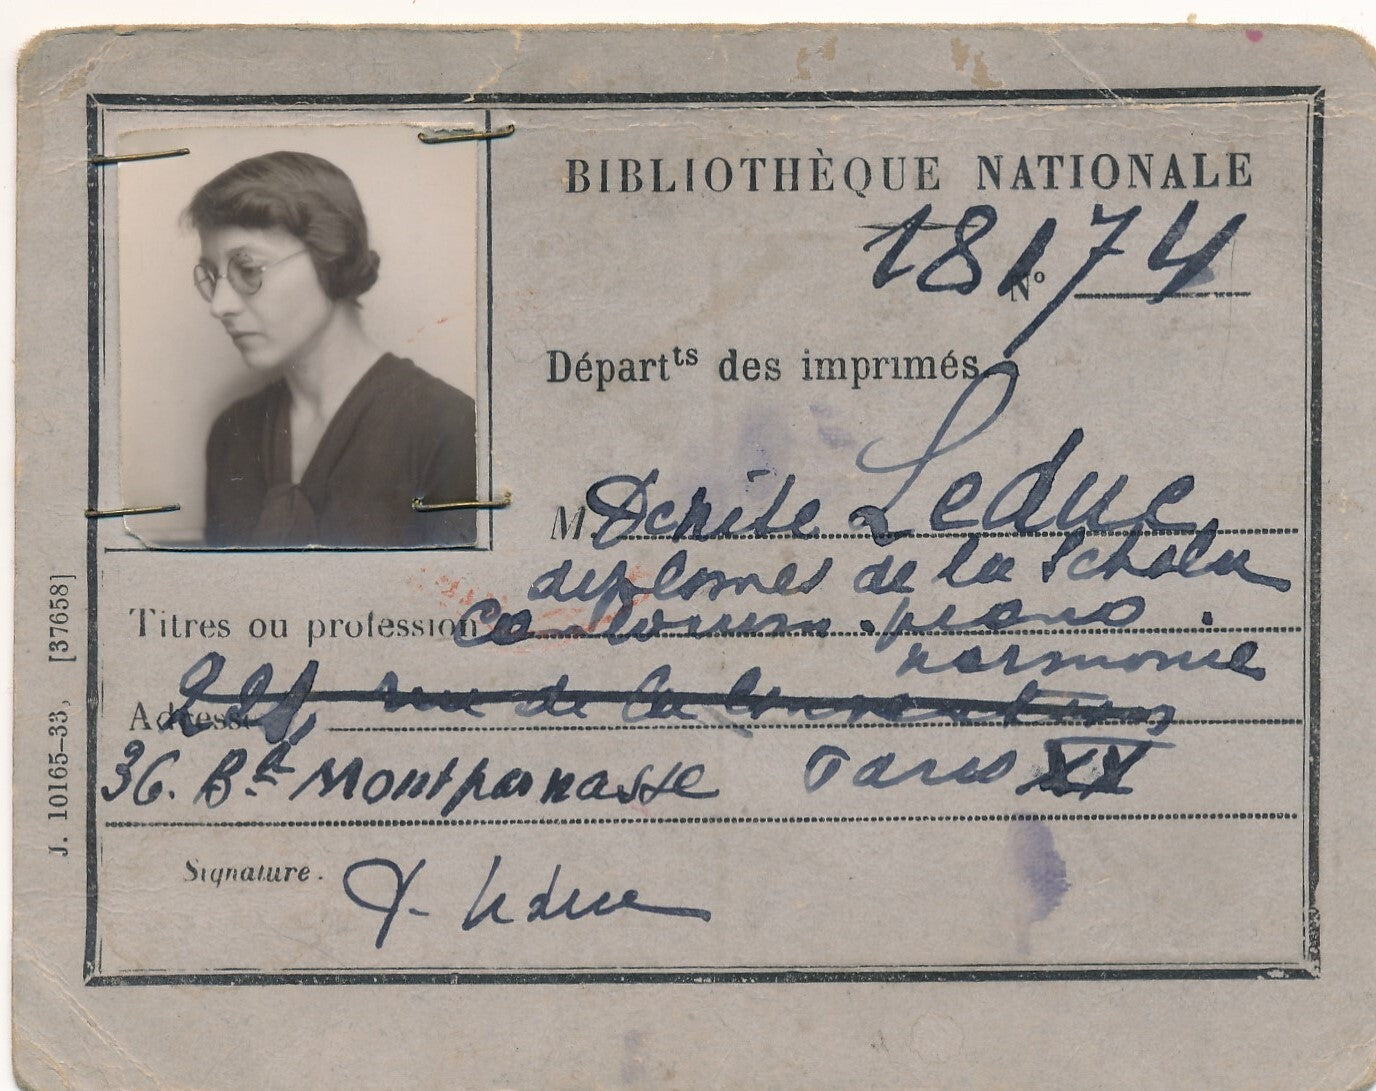 BIBLIOTHÈQUE NATIONALE
Nº 18174
Départᵗˢ des imprimés
M Denise Leduc
diplomes de la Schola
Titres ou profession Cantorum. piano.
harmonie
Adresse rue de la Convention
36. Bᵈ Montparnasse Paris XV
Signature. Leduc
J. 10165-33, [37658]